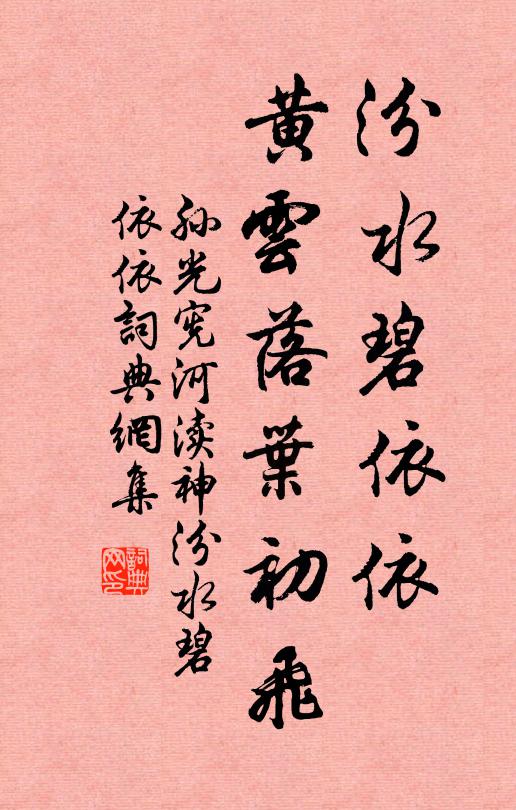 汾水碧依依
黄雲落葉初飛
孙光宪河渎神汾水碧
依依詞典網集
詞典網印